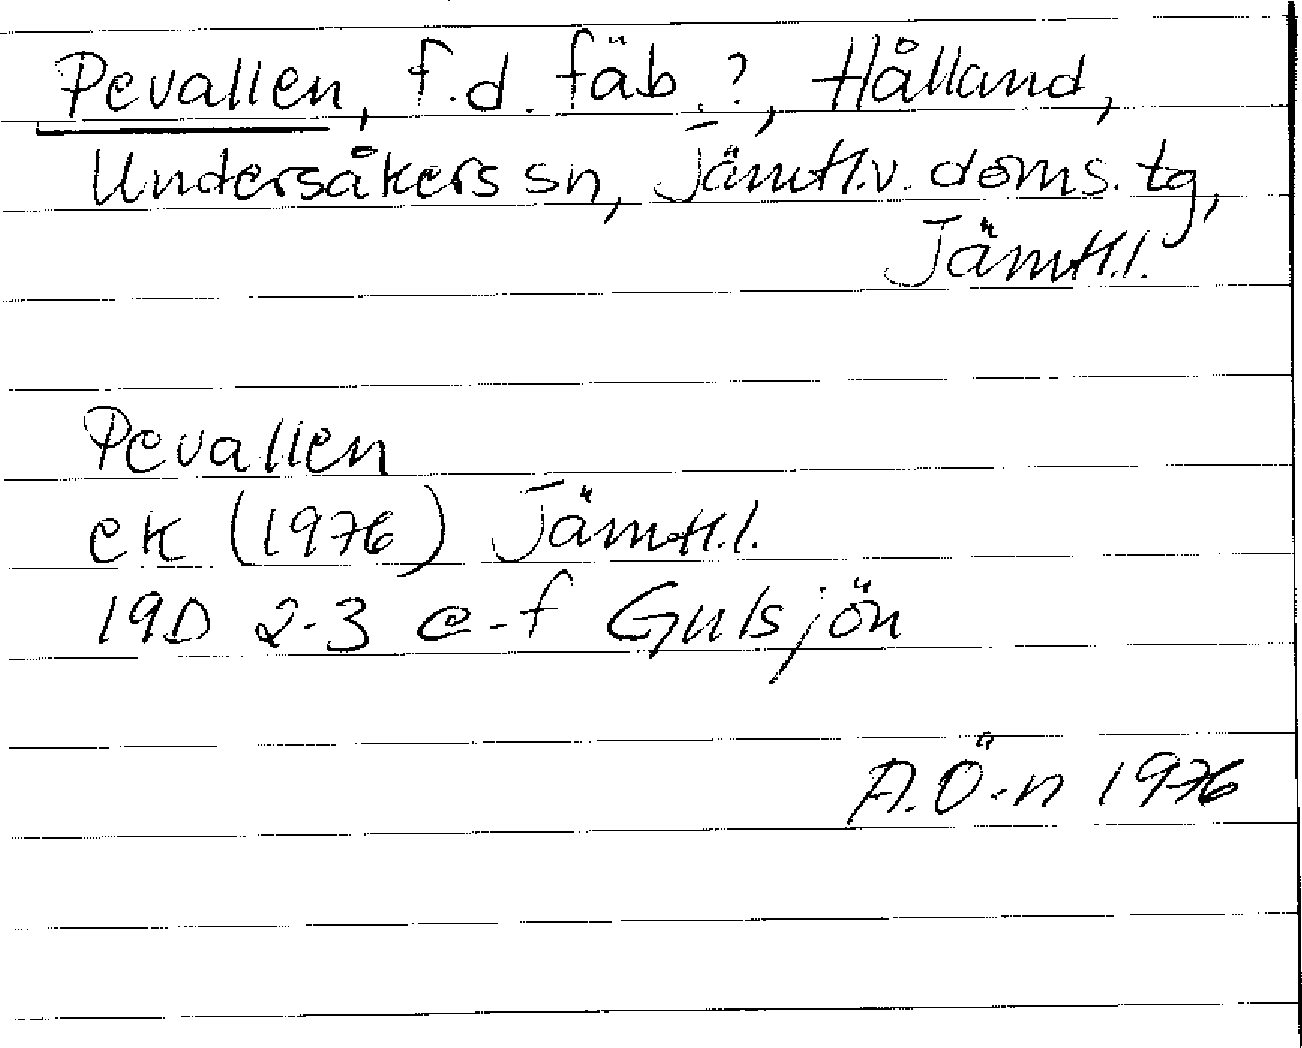 Pevallen, f.d. fäb.?, Hålland,
Undersåkers sn, Jämtl.v. doms. tg,
Jämtl.l.
Pevallen
ek (1976) Jämtl.l.
19D 2-3 e-f Gulsjön
A.Ö-n 1976